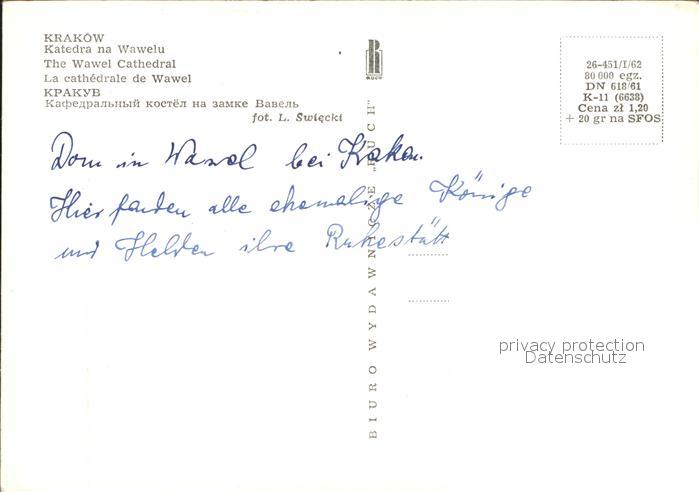 KRAKÓW
Katedra na Wawelu
The Wawel Cathedral
La cathédrale de Wawel
КРАКУВ
Кафедральный костёл на замке Вавель
fot. L. Święcki
RUCH
26-451/I/62
80 000 egz.
DN 618/61
K-11 (6638)
Cena zł 1,20
+ 20 gr na SFOS
Dom in Wawel bei Krakau.
Hier fanden alle ehemalige Könige
und Helden ihre Ruhestätt
BIURO WYDAWNICZE „RUCH"
privacy protection
Datenschutz